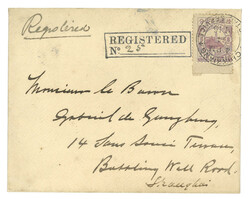 Registered
REGISTERED
No 25
Monsieur le Baron
Gabriel de Gunzburg,
14 Sans Souci Terrace,
Bubbling Well Road.
Shanghai